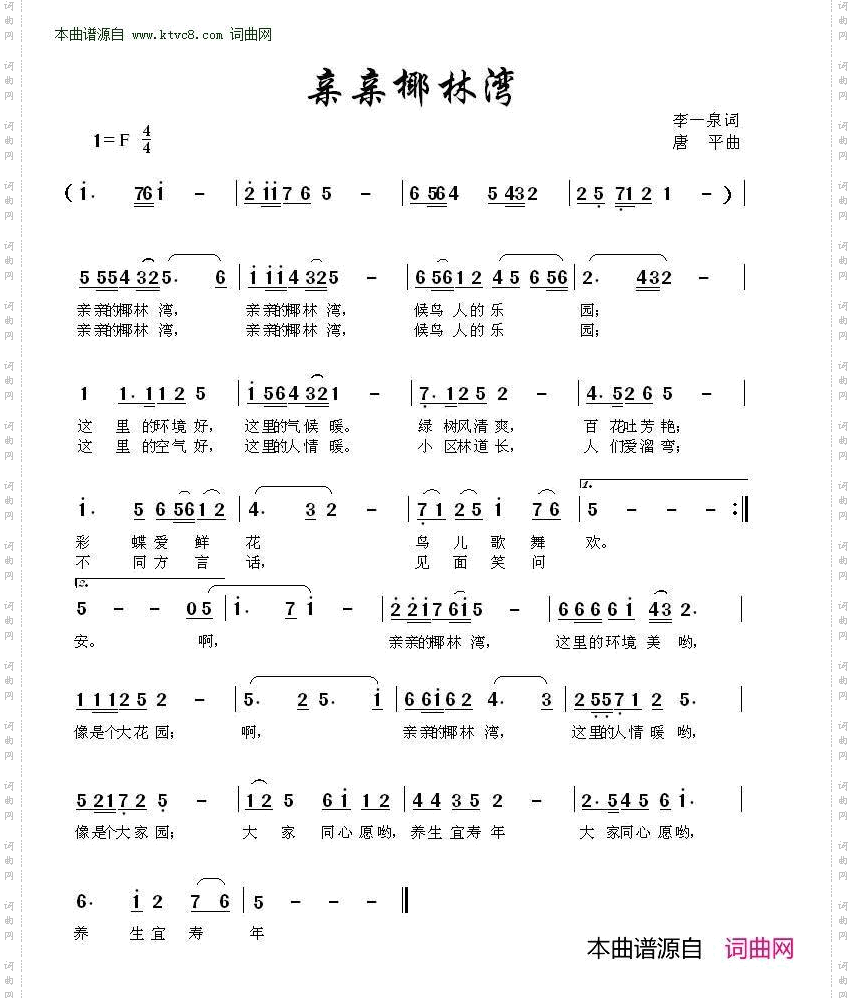 本曲谱源自 www.ktvc8.com 词曲网
亲亲椰林湾
李一泉词
1=F 4/4
唐 平曲
( i· 76i - | 2 ii7 6 5 - | 6 564 5 432 | 2 5 71 2 1 - ) |
5 554 325· 6 | i ii4 325 - | 6 561 2 4 5 6 56 | 2· 432 - |
亲亲的椰林 湾, 亲亲的椰林 湾, 候鸟 人的 乐 园;
亲亲的椰林 湾, 亲亲的椰林 湾, 候鸟 人的 乐 园;
1 1· 11 2 5 | i 564 321 - | 7· 12 5 2 - | 4· 52 6 5 - |
这 里 的环境 好, 这里的气候 暖。 绿 树风清 爽, 百 花吐芳 艳;
这 里 的空气 好, 这里的人情 暖。 小 区林道 长, 人 们爱溜 弯;
i· 5 6 561 2 | 4· 3 2 - | 7 1 2 5 i 7 6 | 1. 5 - - - :||
彩 蝶爱 鲜 花 鸟 儿 歌 舞 欢。
不 同方 言 话, 见 面 笑 问
2. 5 - - 0 5 | i· 7 i - | 2 2i7 6i5 - | 6 6 6 6 i 43 2· |
安。 啊, 亲亲的椰林 湾, 这里的环境 美 哟,
1 112 5 2 - | 5· 2 5· i | 6 6i6 2 4· 3 | 2 557 1 2 5· |
像是个大花 园; 啊, 亲亲的椰林 湾, 这里的人情 暖 哟,
5 217 2 5 - | 1 2 5 6 i 1 2 | 4 4 3 5 2 - | 2· 54 5 6 i· |
像是个大家 园; 大 家 同心 愿哟, 养生 宜寿 年 大 家同心 愿哟,
6· i 2 7 6 | 5 - - - ||
养 生 宜 寿 年
本曲谱源自 词曲网